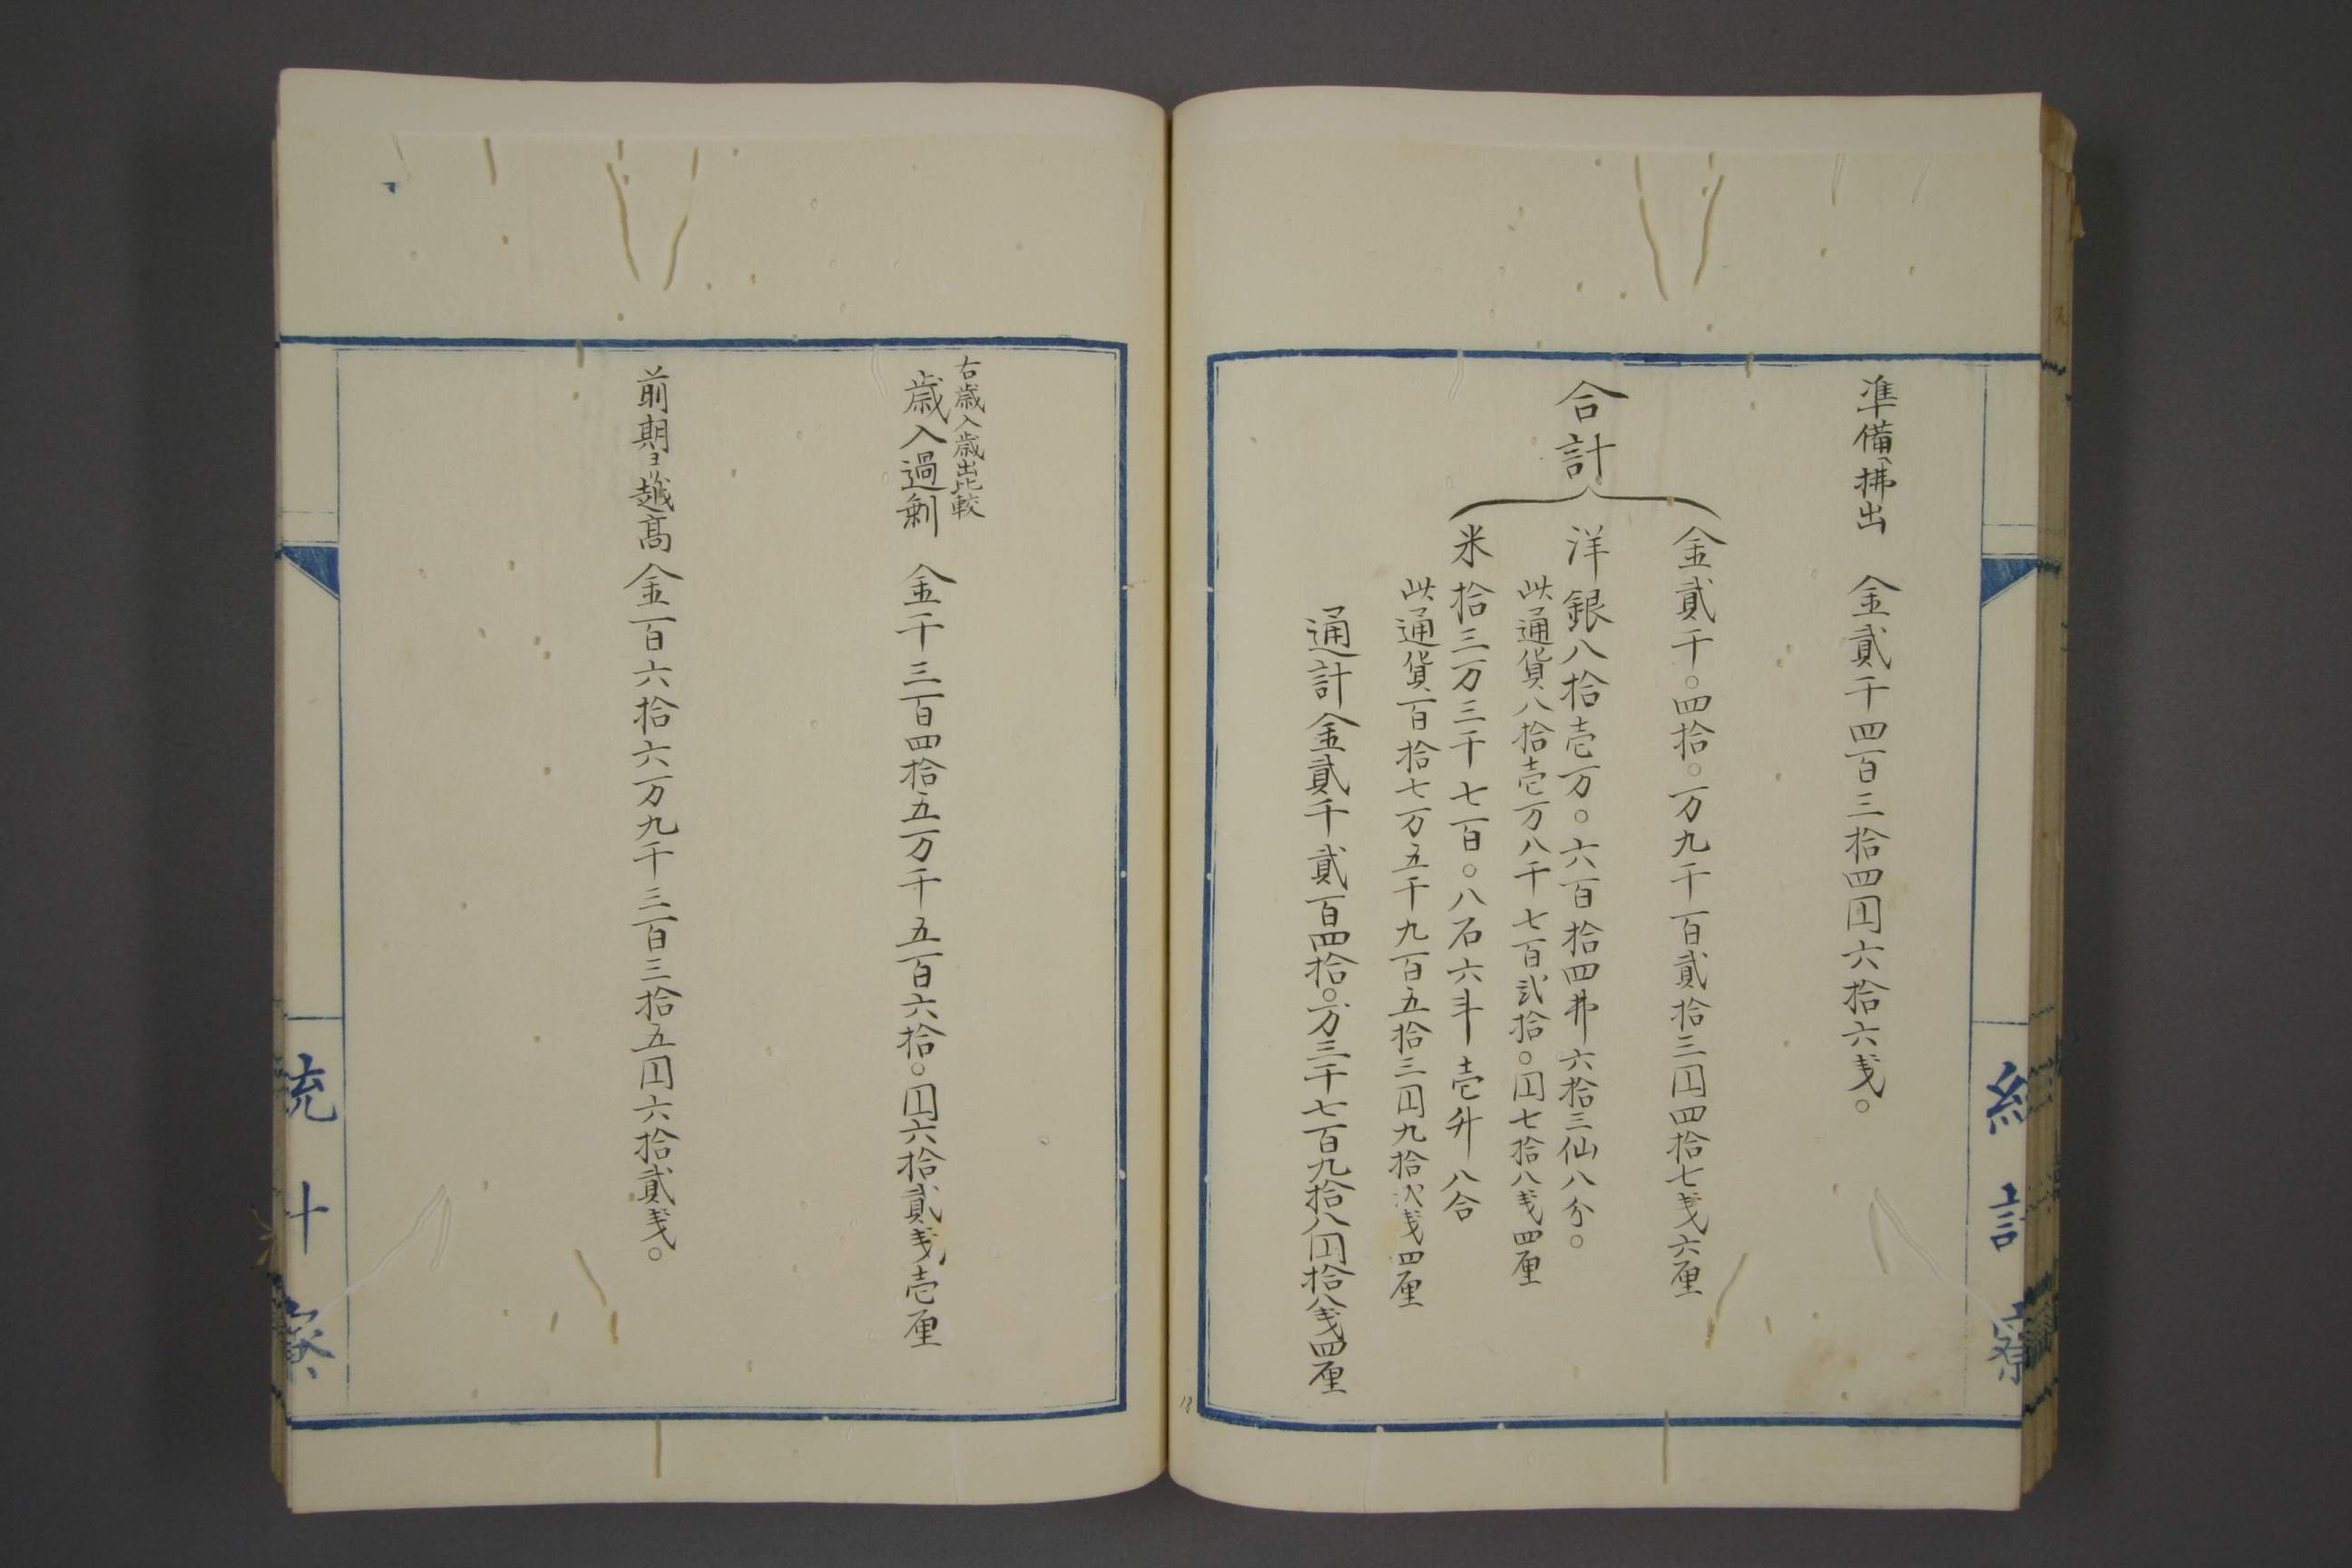 準備ヘ拂出　金貳千四百三拾四円六拾六戔。
合計
金貳千。四拾。万九千百貳拾三円四拾七戔六厘
洋銀八拾壱万。六百拾四弗六拾三仙八分。
此通貨八拾壱万八千七百弐拾。円七拾八戔四厘
米拾三万三千七百。八石六斗壱升八合
此通貨百拾七万五千九百五拾三円九拾弐戔四厘
通計金貳千貳百四拾。万三千七百九拾八円拾八戔四厘
統計寮
18
右歳入歳出比較
歳入過剰　金千三百四拾五万千五百六拾。円六拾貳戔壱厘
前期ヨリ越高　金百六拾六万九千三百三拾五円六拾貳戔。
統計寮